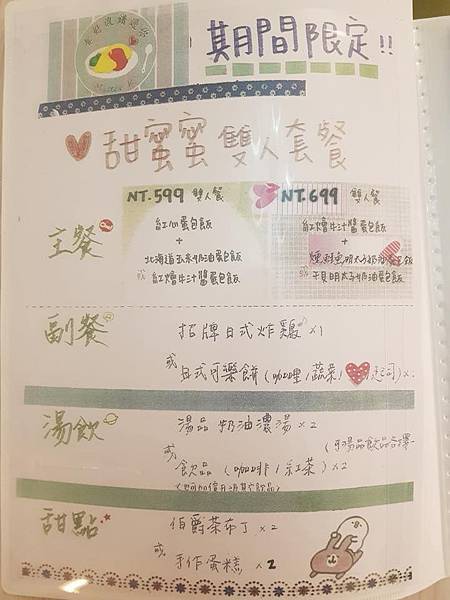 期間限定!!
甜蜜蜜雙人套餐
NT.599 雙人餐
NT.699 雙人餐
主餐
紅心蛋包飯
+
北海道玉米奶油蛋包飯
或 紅燴牛汁醬蛋包飯
紅燴牛汁醬蛋包飯
+
燻鮭魚明太子奶油
或 干貝明太子奶油蛋包飯
副餐
招牌日式炸雞 x1
或 日式可樂餅 (咖哩/蔬菜/起司)x
湯飲
湯品 奶油濃湯 x2
或
飲品 (咖啡/紅茶) x2
甜點
伯爵茶布丁 x2
或 手作蛋糕 x2